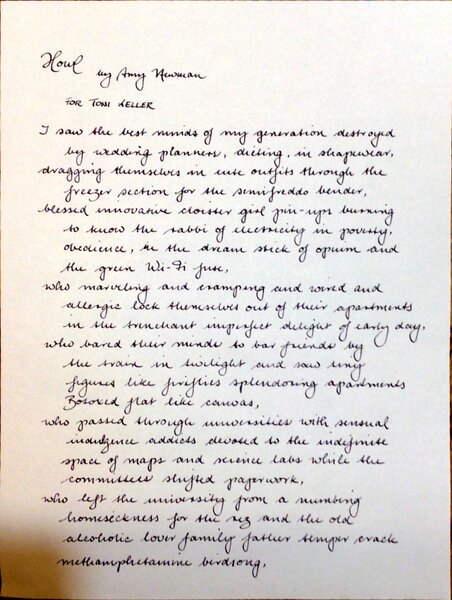 Howl by Amy Newman
FOR TONI KELLER
I saw the best minds of my generation destroyed
by wedding planners, dieting, in shapewear,
dragging themselves in cute outfits through the
freezer section for the semifreddo bender,
blessed innovative cloister girl pin-ups burning
to know the rabbi of electricity in poverty,
obedience, in the dream stick of opium and
the green Wi-Fi fuse,
who marveling and cramping and wired and
allergic lock themselves out of their apartments
in the trenchant imperfect delight of early day,
who bared their minds to bar friends by
the train in twilight and saw tiny
figures like fireflies splendoring apartments
Botoxed flat like canvas,
who passed through universities with sensual
indulgence addicts devoted to the indefinite
space of maps and science labs while the
committees shifted paperwork,
who left the university from a numbing
homesickness for the rez and the old
alcoholic lover family father temper crack
methamphetamine birdsong,